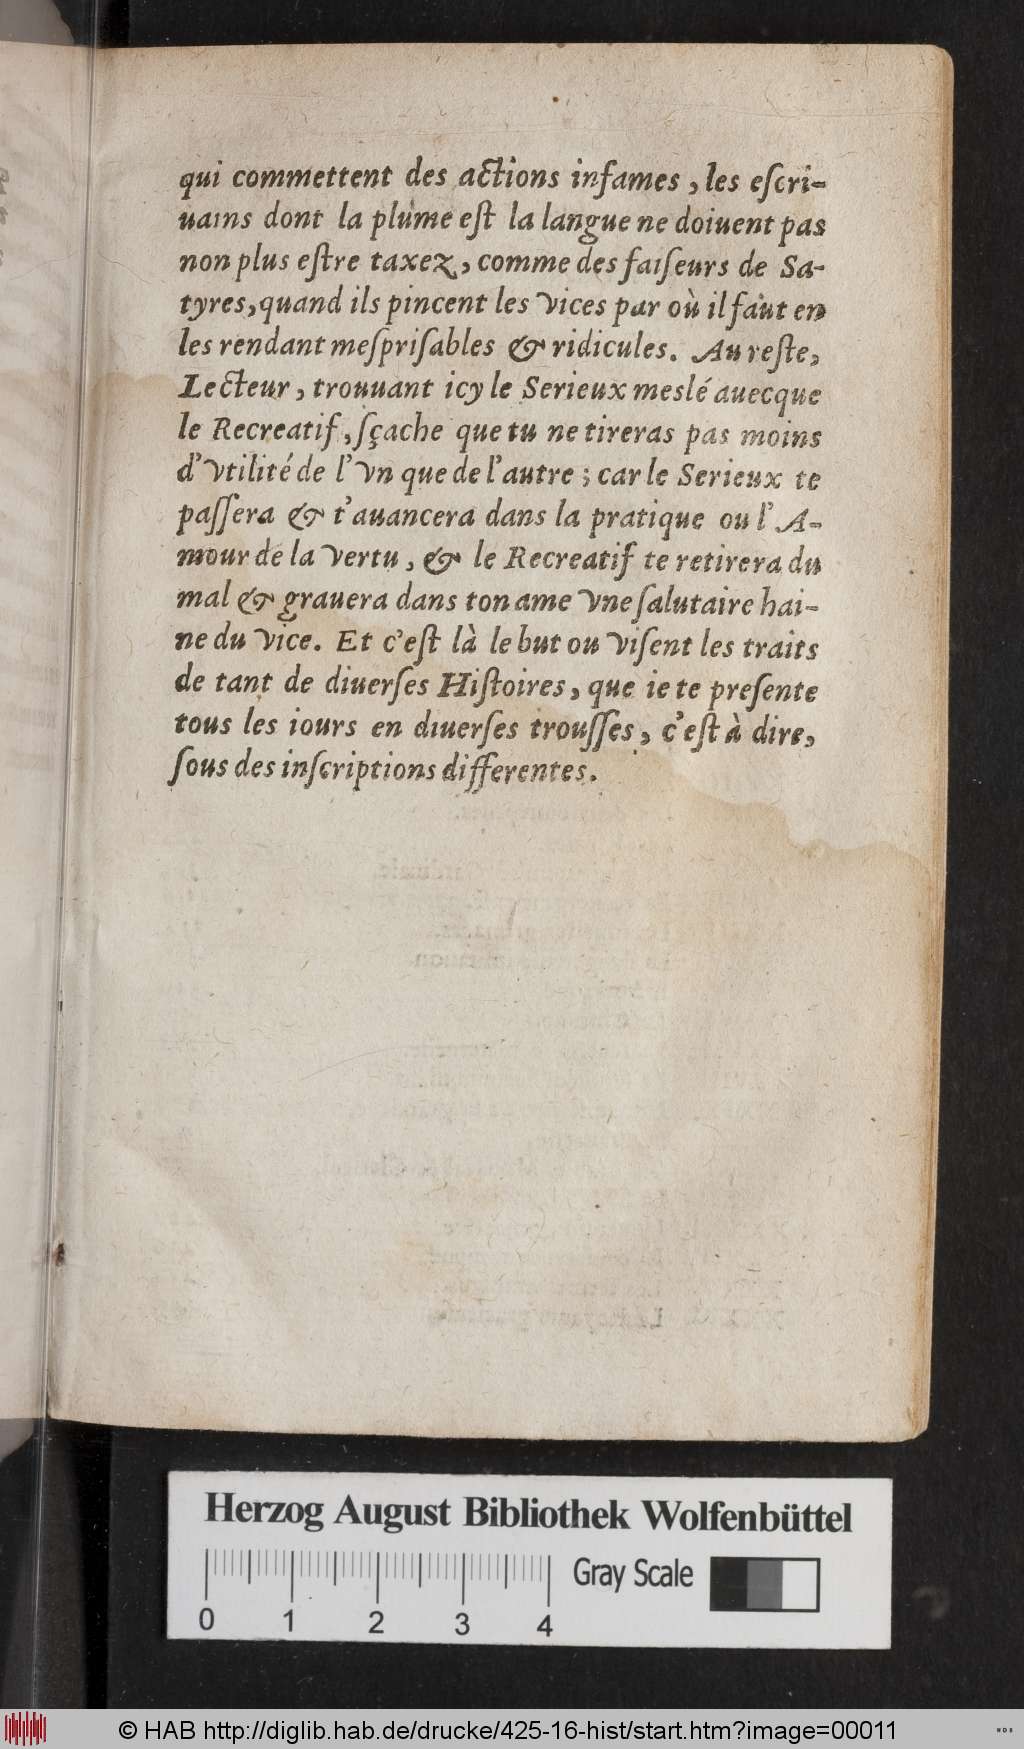 qui commettent des actions infames, les eſcri-
uains dont la plume eſt la langue ne doiuent pas
non plus eſtre taxez, comme des faiſeurs de Sa-
tyres, quand ils pincent les vices par où il faut en
les rendant meſpriſables & ridicules. Au reſte,
Lecteur, trouuant icy le Serieux meslé auecque
le Recreatif, ſçache que tu ne tireras pas moins
d'vtilité de l'vn que de l'autre; car le Serieux te
paſſera & t'auancera dans la pratique ou l'A-
mour de la vertu, & le Recreatif te retirera du
mal & grauera dans ton ame vne ſalutaire hai-
ne du vice. Et c'eſt là le but ou viſent les traits
de tant de diuerſes Hiſtoires, que ie te preſente
tous les iours en diuerſes trouſſes, c'eſt à dire,
ſous des inſcriptions differentes.
Herzog August Bibliothek Wolfenbüttel
Gray Scale
0 1 2 3 4
© HAB http://diglib.hab.de/drucke/425-16-hist/start.htm?image=00011